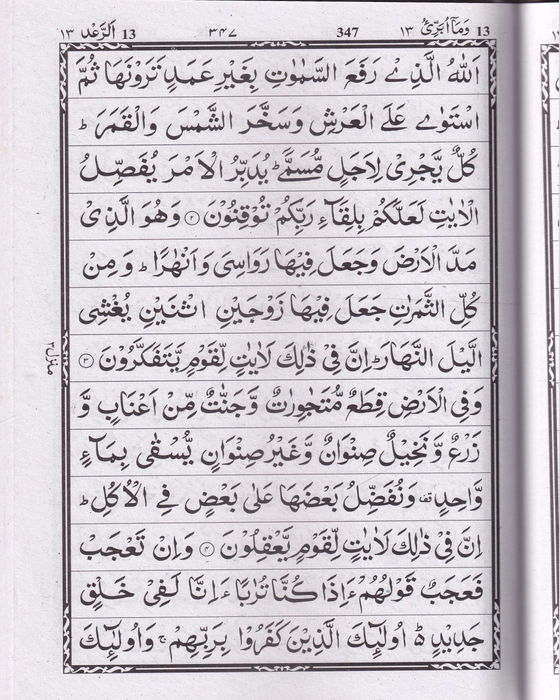 13 وَمَآ اُبَرِّئُ ١٣ 347 ٣٤٧ 13 اَلرَّعْد ١٣
اَللّٰهُ الَّذِيْ رَفَعَ السَّمٰوٰتِ بِغَيْرِ عَمَدٍ تَرَوْنَهَا ثُمَّ
اسْتَوٰى عَلَى الْعَرْشِ وَسَخَّرَ الشَّمْسَ وَالْقَمَرَ ؕ
كُلٌّ يَّجْرِيْ لِاَجَلٍ مُّسَمًّى ؕ يُدَبِّرُ الْاَمْرَ يُفَصِّلُ
الْاٰيٰتِ لَعَلَّكُمْ بِلِقَآءِ رَبِّكُمْ تُوْقِنُوْنَ ۝٢ وَهُوَ الَّذِيْ
مَدَّ الْاَرْضَ وَجَعَلَ فِيْهَا رَوَاسِيَ وَاَنْهٰرًا ؕ وَمِنْ
كُلِّ الثَّمَرٰتِ جَعَلَ فِيْهَا زَوْجَيْنِ اثْنَيْنِ يُغْشِي
الَّيْلَ النَّهَارَ ؕ اِنَّ فِيْ ذٰلِكَ لَاٰيٰتٍ لِّقَوْمٍ يَّتَفَكَّرُوْنَ ۝٣
وَفِي الْاَرْضِ قِطَعٌ مُّتَجٰوِرٰتٌ وَّجَنّٰتٌ مِّنْ اَعْنَابٍ وَّ
زَرْعٌ وَّنَخِيْلٌ صِنْوَانٌ وَّغَيْرُ صِنْوَانٍ يُّسْقٰى بِمَآءٍ
وَّاحِدٍ قف وَنُفَضِّلُ بَعْضَهَا عَلٰى بَعْضٍ فِي الْاُكُلِ ؕ
اِنَّ فِيْ ذٰلِكَ لَاٰيٰتٍ لِّقَوْمٍ يَّعْقِلُوْنَ ۝٤ وَاِنْ تَعْجَبْ
فَعَجَبٌ قَوْلُهُمْ ءَاِذَا كُنَّا تُرٰبًا ءَاِنَّا لَفِيْ خَلْقٍ
جَدِيْدٍ ۬ؕ اُولٰٓئِكَ الَّذِيْنَ كَفَرُوْا بِرَبِّهِمْ ۚ وَاُولٰٓئِكَ
منزل ٣